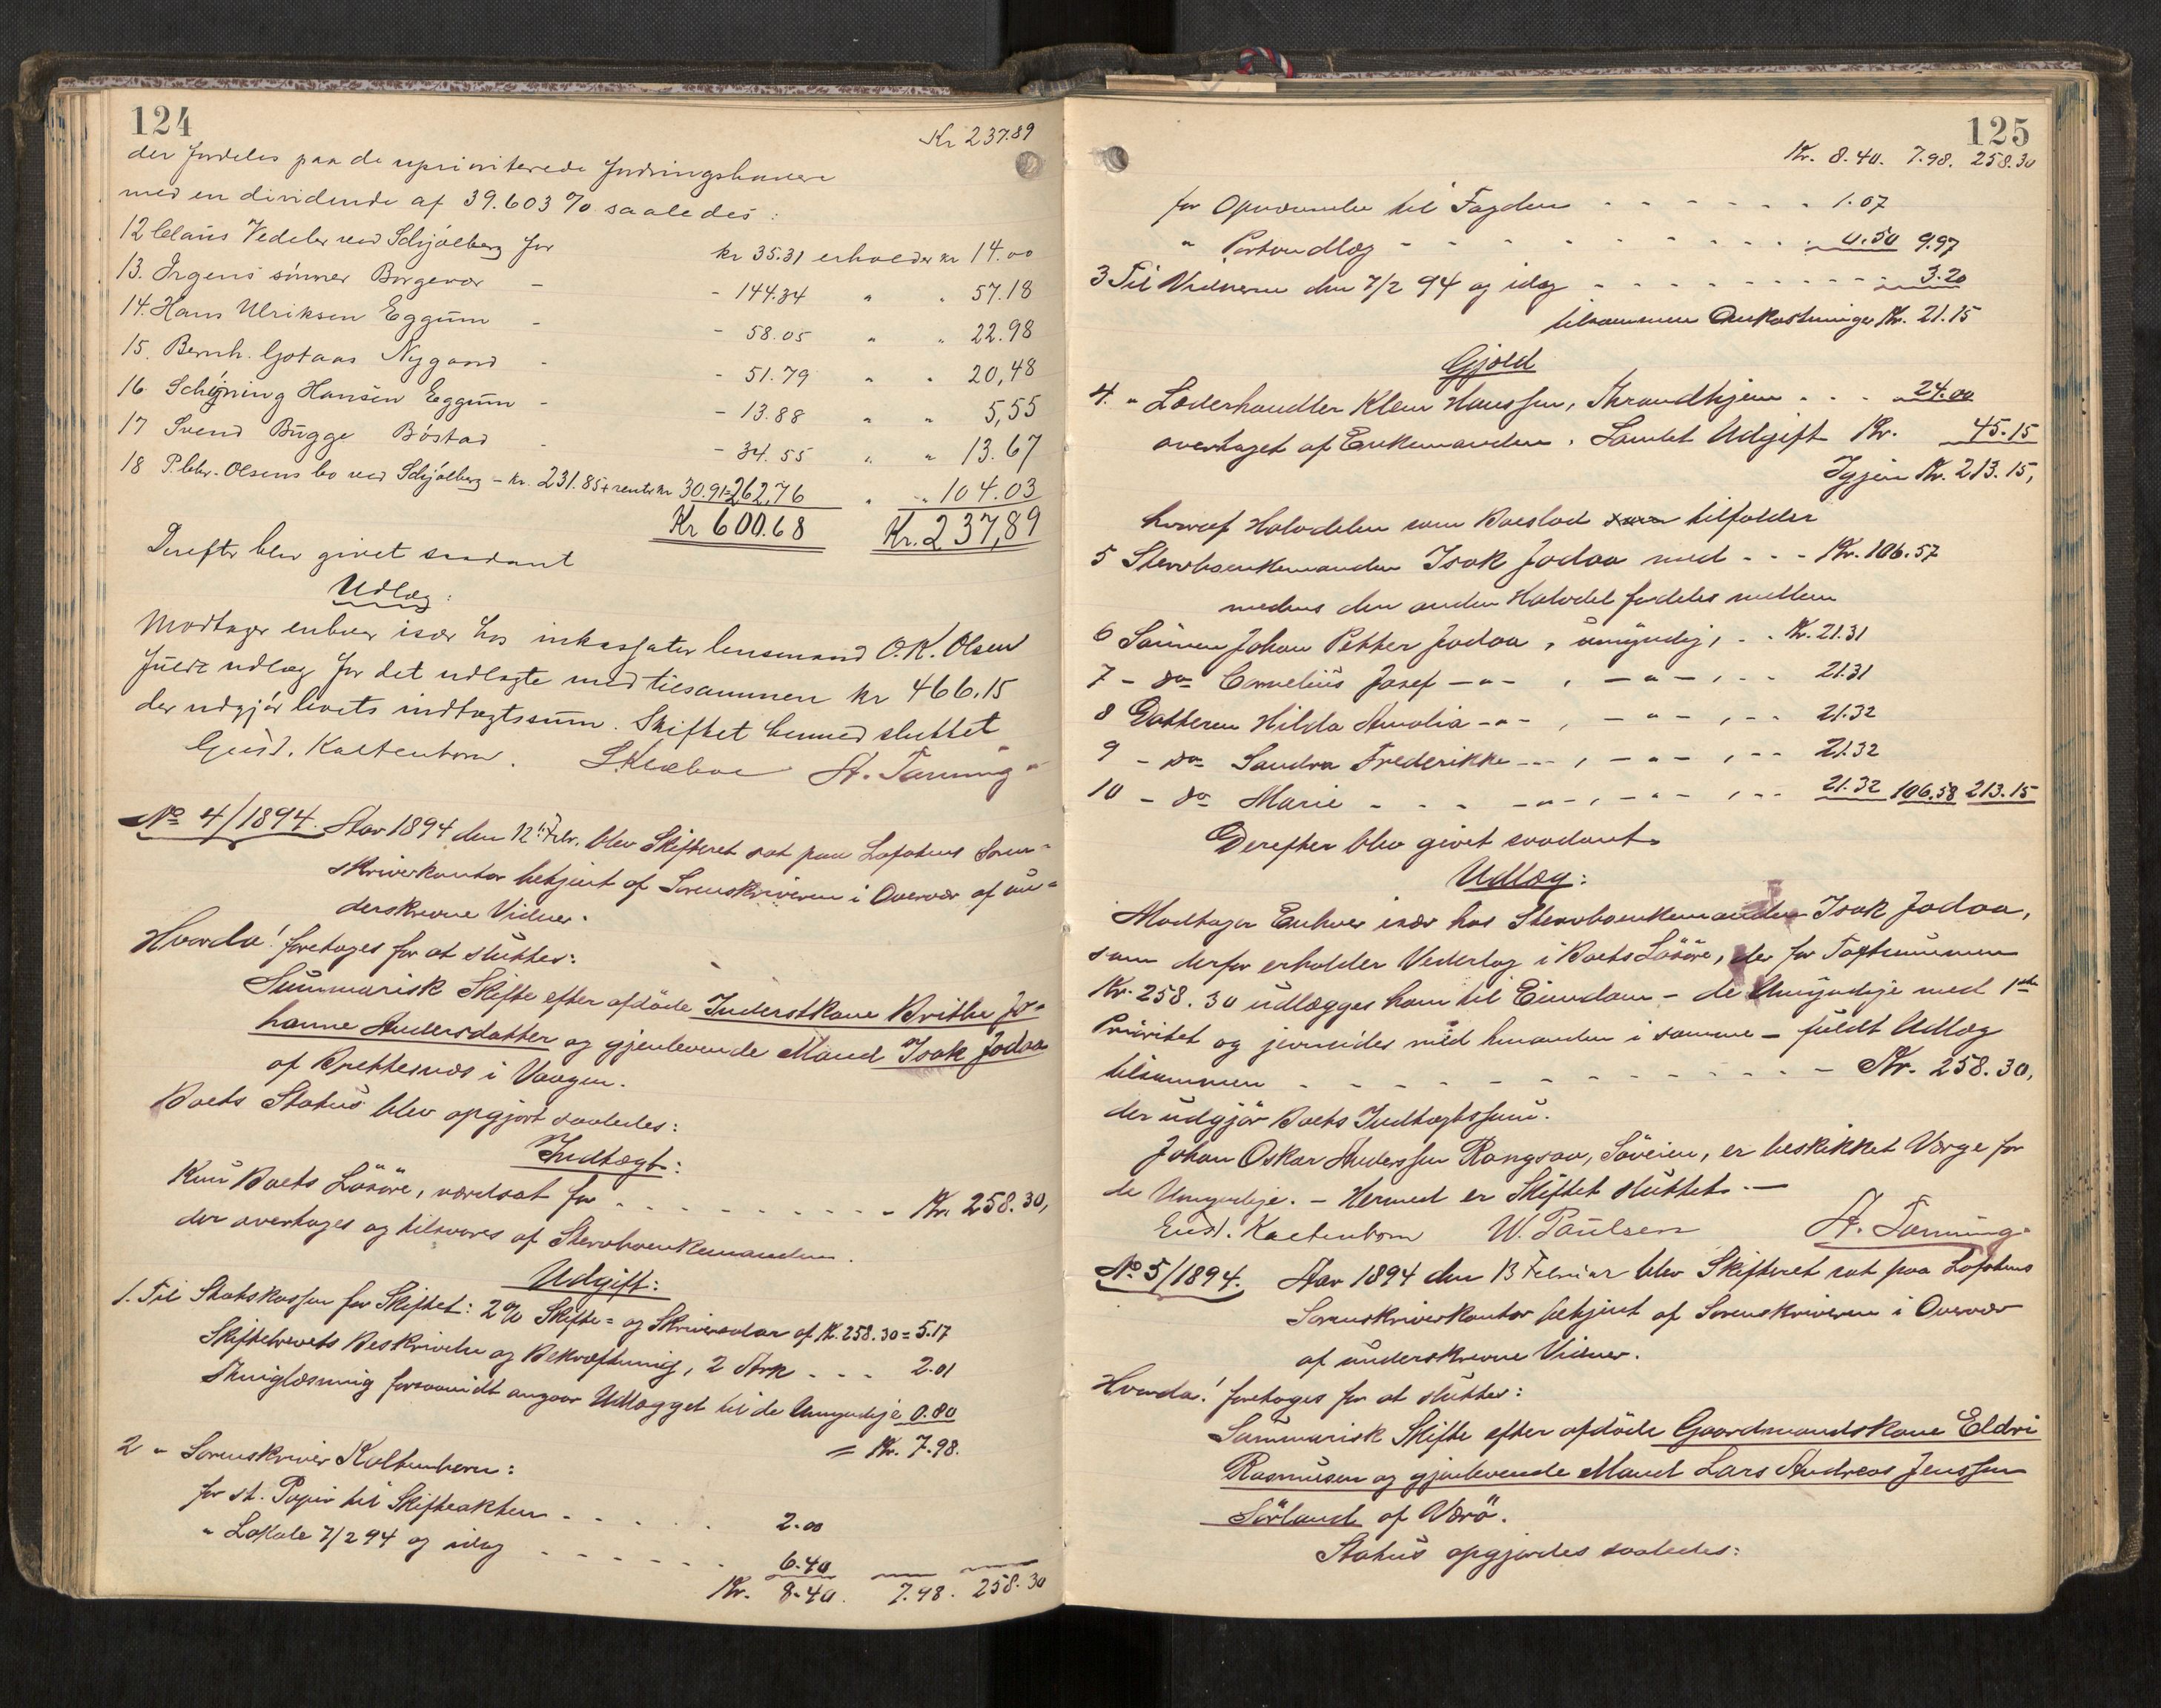 124
Kr 237.89
der fordeles paa de upriviterede fordringshavere
med en dividende af 39.603 % saaledes:
12 Claus Vedeler ved Schjølberg for kr 35.31 erholder kr 14.00
13. Irgens sønner Borgevær - - 144.34 " " 57.18
14. Hans Ulriksen Eggum - - 58.05 " " 22.98
15. Bernh. Gotaas Nygaard - - 51.79 " " 20,48
16 Schøning Hansen Eggum - - 13.88 " " 5,55
17 Svend Bugge Bøstad - - 34.55 " " 13.67
18 P. Chr. Olsens bo ved Schjølberg - kr. 231.85 + rente kr 30.91 = 262,76 " " 104.03
Kr 600.68 Kr. 237,89
Derefter blev givet saadant
Udlæg:
Modtager enhver især hos inkassator lensmand O.K. Olsen
fuldt udlæg for det udlagte med tilsammen kr 466.15
der udgjør boets indtægtssum. Skiftet hermed sluttet
Gust. Kaltenborn. S. Klæboe A. Tanning
No 4/1894. Aar 1894 den 12te Febr. blev Skifteret sat paa Lofotens Soren-
skriverkontor betjent af Sorenskriveren i Overvær af un-
derskrevne Vidner.
Hvorda! foretoges for at sluttes:
Summarisk Skifte efter afdøde Inderstkone Brithe Jo-
hanne Andersdatter og gjenlevende Mand Isak Jodaa
af Brettesnæs i Vaagen.
Boets Status blev opgjort saaledes:
Indtægt:
Kun Boets Løsøre, værdsat for - - - - - - - - - Kr. 258.30,
der overtages og tilsvares af Stervboenkemanden.
Udgift:
1. Til Statskassen for Skiftet: 2% Skifte- og Skriversalær af Kr. 258.30 = 5.17
Skiftebrevets Beskrivelse og Bekræftning, 2 Ark - - - 2.01
Thinglæsning forsaavidt angaar Udlægget til de Umyndige 0.80
= Kr. 7.98.
2 " Sorenskriver Kaltenborn:
for st. Papir til Skifteakten - - - - - 2.00
" Lokale 7/2 94 og idag - - - - - - 6.40
Kr. 8.40. 7.98. 258.30
125
Kr. 8.40. 7.98. 258.30
for Opnævnelse til Fogden - - - - - - - 1.07
" Portoudlæg - - - - - - - - - - 0.50 9.97
3 Til Vidnerne den 7/2 94 og idag - - - - - - - - - 3.20
tilsammen Omkostninger Kr. 21.15
Gjæld
4. " Læderhandler Klem Hanssen, Throndhjem - - - 24.00
overtaget af Enkemanden. Samlet Udgift Kr. 45.15
Igjen Kr. 213.15,
hvoraf Halvdelen som Boeslod tilfalder
5 Stervboenkemanden Isak Jodaa med - - - Kr. 106.57
medens den anden Halvdel fordeles mellem
6 Sønnen Johan Petter Jodaa, umyndig, - - Kr. 21.31
7 - do Cornelius Josef - " - , - " - , - - 21.31
8 Datteren Hilda Amalia - " - , - " - , - - 21.32
9 - do Sandra Frederikke - - - , - " - , - - 21.32
10 - do Marie - - - - " - , - " - , - - 21.32 106.58 213.15
Derefter blev givet saadant
Udlæg:
Modtager Enhver især hos Stervboenkemanden Isak Jodaa,
som derfor erholder Vederlag i Boets Løsøre, der for Taxtsummen
Kr. 258.30 udlægges ham til Eiendom - de Umyndige med 1ste
Prioritet og jevnsides med hinanden i samme - fuldt Udlæg
tilsammen - - - - - - - - - - - - Kr. 258.30,
der udgjør Boets Indtægtssum.
Johan Oskar Anderssen Rangsaa, Søveien, er beskikket Værge for
de Umyndige. - Hermed er Skiftet sluttet. -
Gust. Kaltenborn W. Paulsen A. Tanning
No. 5/1894. Aar 1894 den 13 Februar blev Skifteret sat paa Lofotens
Sorenskriverkontor betjent af Sorenskriveren i Overvær
af underskrevne Vidner.
Hvorda! foretoges for at sluttes:
Summarisk Skifte efter afdøde Gaardmandskone Eldri
Rasmusen og gjenlevende Mand Lars Andreas Jenssen
Sørland af Værø.
Status opgjordes saaledes: